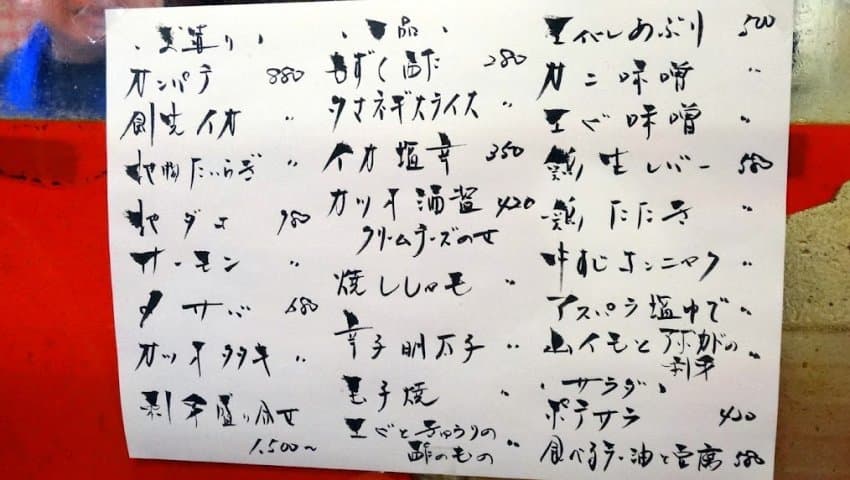 お造り
カンパチ 880
剣先イカ 〃
地ダコ 980
サーモン 〃
〆サバ 680
カツオタタキ 〃
刺身盛り合せ
1,500〜
一品
もずく酢 280
タマネギスライス 〃
イカ塩辛 350
カツオ酒盗 420
クリームチーズのせ
焼ししゃも 〃
辛子明太子 〃
玉子焼 〃
エビときゅうりの 〃
酢のもの
エイヒレあぶり 500
カニ味噌 〃
エビ味噌 〃
鶏生レバー 580
鶏たたき 〃
牛すじコンニャク 〃
アスパラ塩ゆで 〃
山イモとアボカドの 〃
刺身
サラダ
ポテサラ 420
食べるラー油と豆腐 580